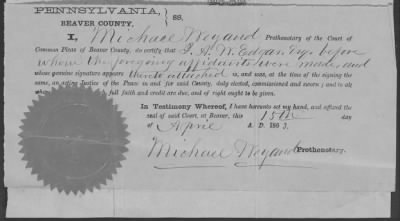 PENNSYLVANIA,
BEAVER COUNTY. } SS.
I, Michael Weyand Prothonotary of the Court of
Common Pleas of Beaver County, do certify that J. A. W. Edgar Esq. before
whom the foregoing affidavits were made and
whose genuine signature appears thereto attached is, and was, at the time of the signing the
same, an acting Justice of the Peace in and for said County, duly elected, commissioned and sworn; and to all
which full faith and credit are due, and of right ought to be given.
In Testimony Whereof, I have hereunto set my hand, and affixed the
seal of said Court, at Beaver, this 15th day
of April A. D. 1863.
Michael Weyand Prothonotary.